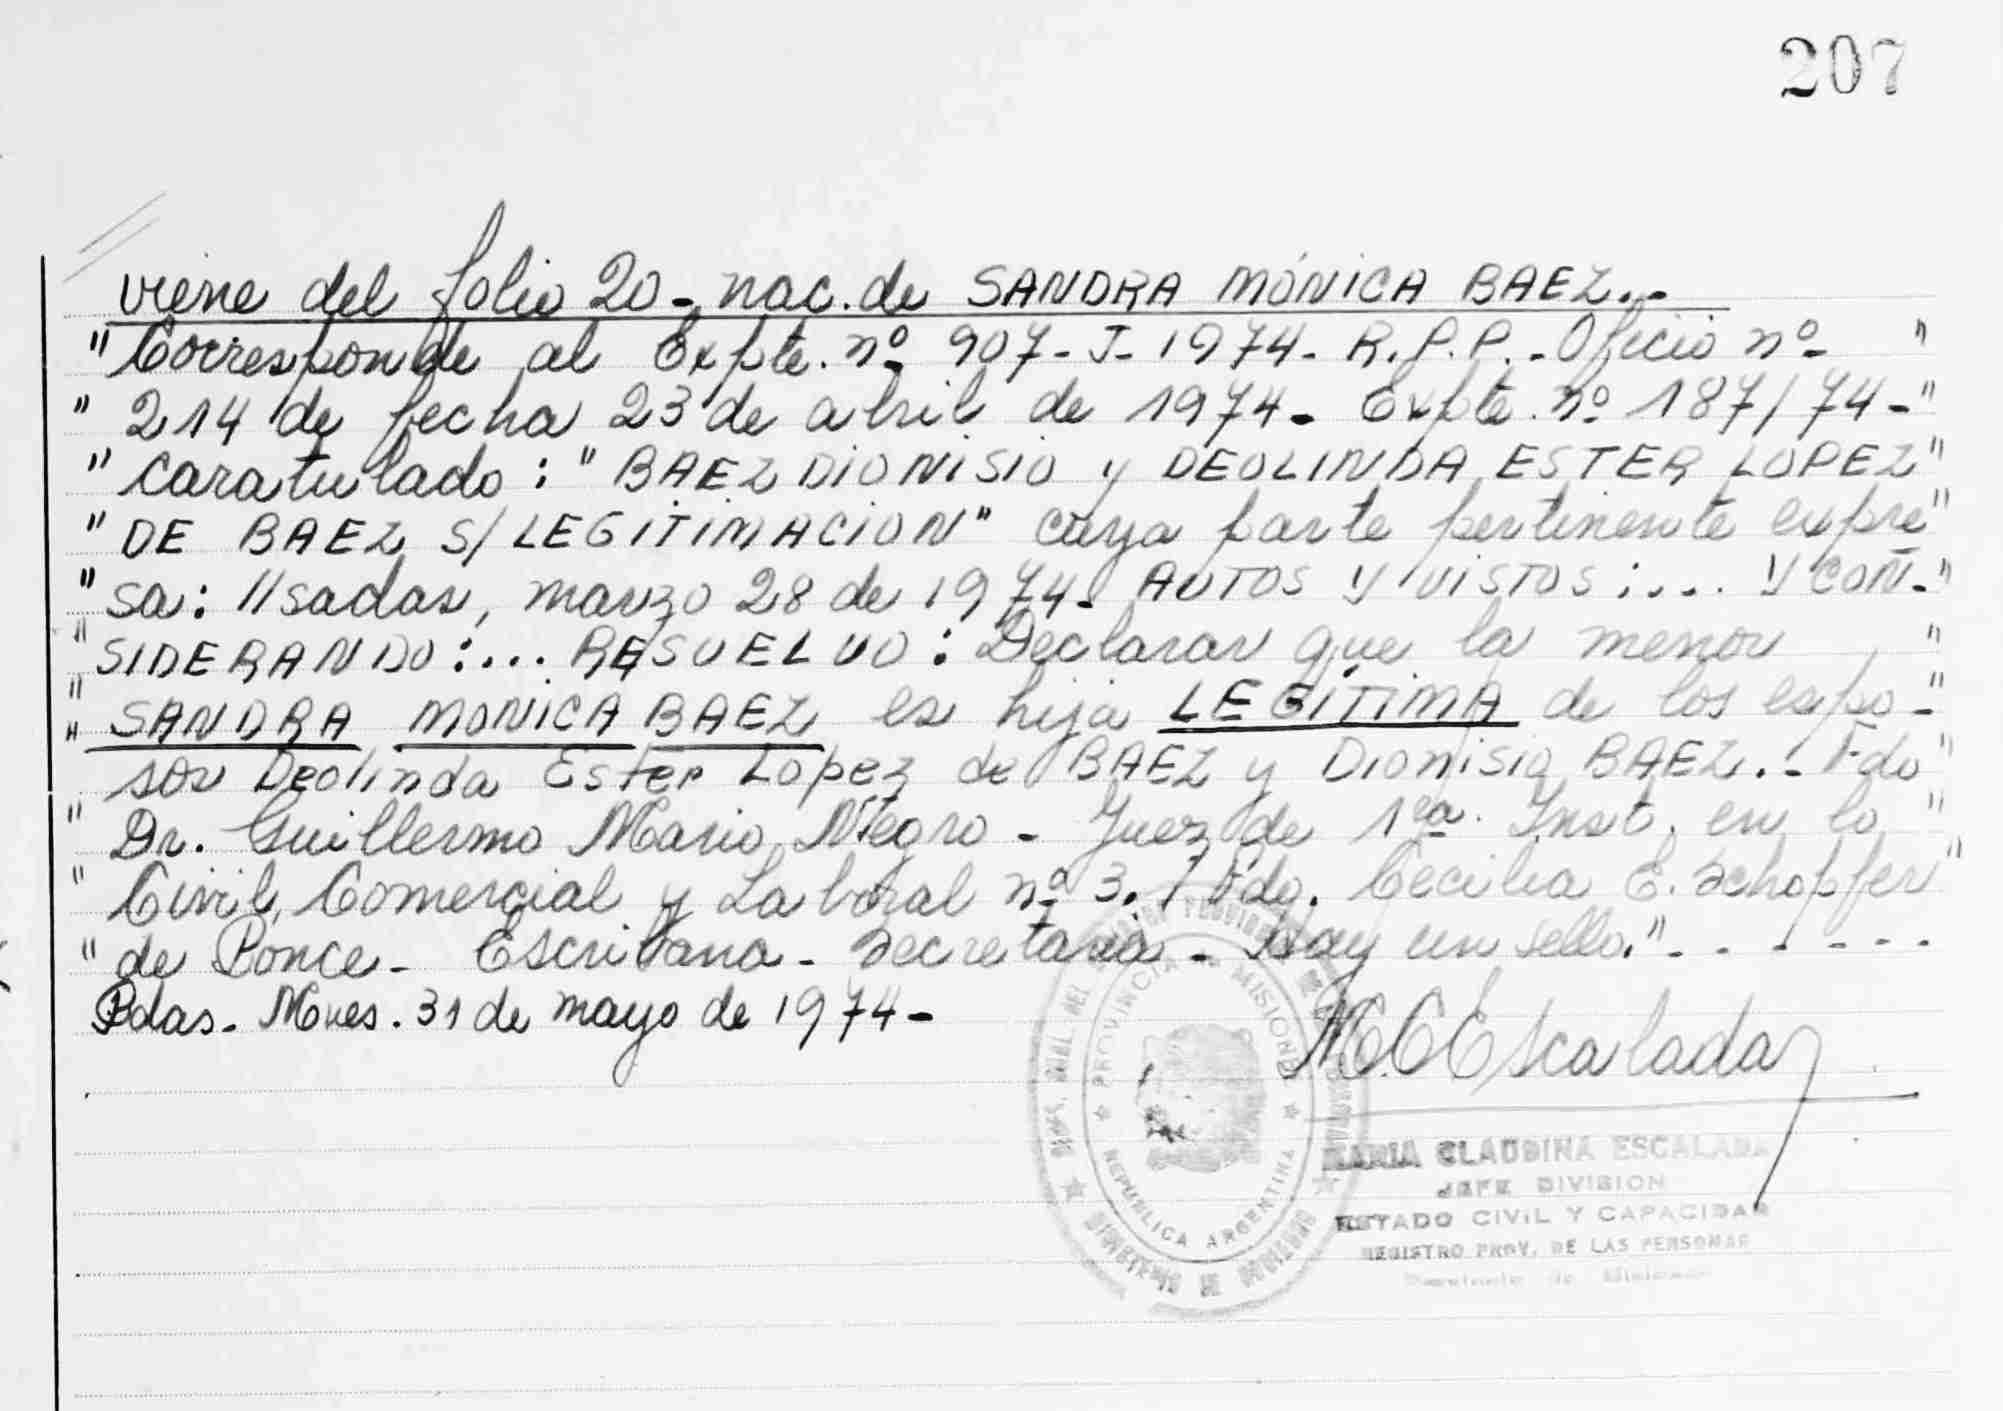 207
viene del folio 20- nac. de SANDRA MÓNICA BAEZ.-
"Corresponde al Expte. nº 907-J-1974- R.P.P.- Oficio nº- "
" 214 de fecha 23 de abril de 1974- Expte. nº 187/74-"
" caratulado: "BAEZ DIONISIO y DEOLINDA ESTER LOPEZ"
" DE BAEZ S/LEGITIMACION" cuya parte pertinente expre"
" sa: //sadas, marzo 28 de 1974- AUTOS Y VISTOS:... Y CON-"
" SIDERANDO:... RESUELVO: Declarar que la menor "
" SANDRA MONICA BAEZ es hija LEGITIMA de los espo-"
" sos Deolinda Ester Lopez de BAEZ y Dionisio BAEZ.- Fdo"
" Dr. Guillermo Mario Negro - Juez de 1ra. Inst. en lo "
" Civil, Comercial y Laboral nº 3. / Fdo. Cecilia E. Schopfer"
" de Ponce- Escribana- Secretaria - Hay un sello."- - - - - -
Pdas- Mnes. 31 de mayo de 1974-
M.C.Escalada
PROVINCIA DE MISIONES
REPUBLICA ARGENTINA
MARIA CLAUDINA ESCALADA
JEFE DIVISION
ESTADO CIVIL Y CAPACIDAD
REGISTRO PROV. DE LAS PERSONAS